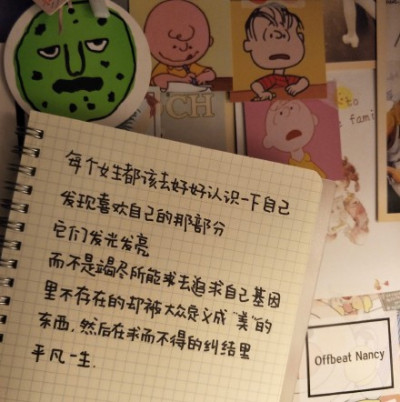 CH
to
e fami
每个女生都该去好好认识一下自己
发现喜欢自己的那部分
它们发光发亮
而不是竭尽所能求去追求自己基因
里不存在的却被大众定义成“美”的
东西,然后在求而不得的纠结里
平凡一生.
Offbeat Nancy